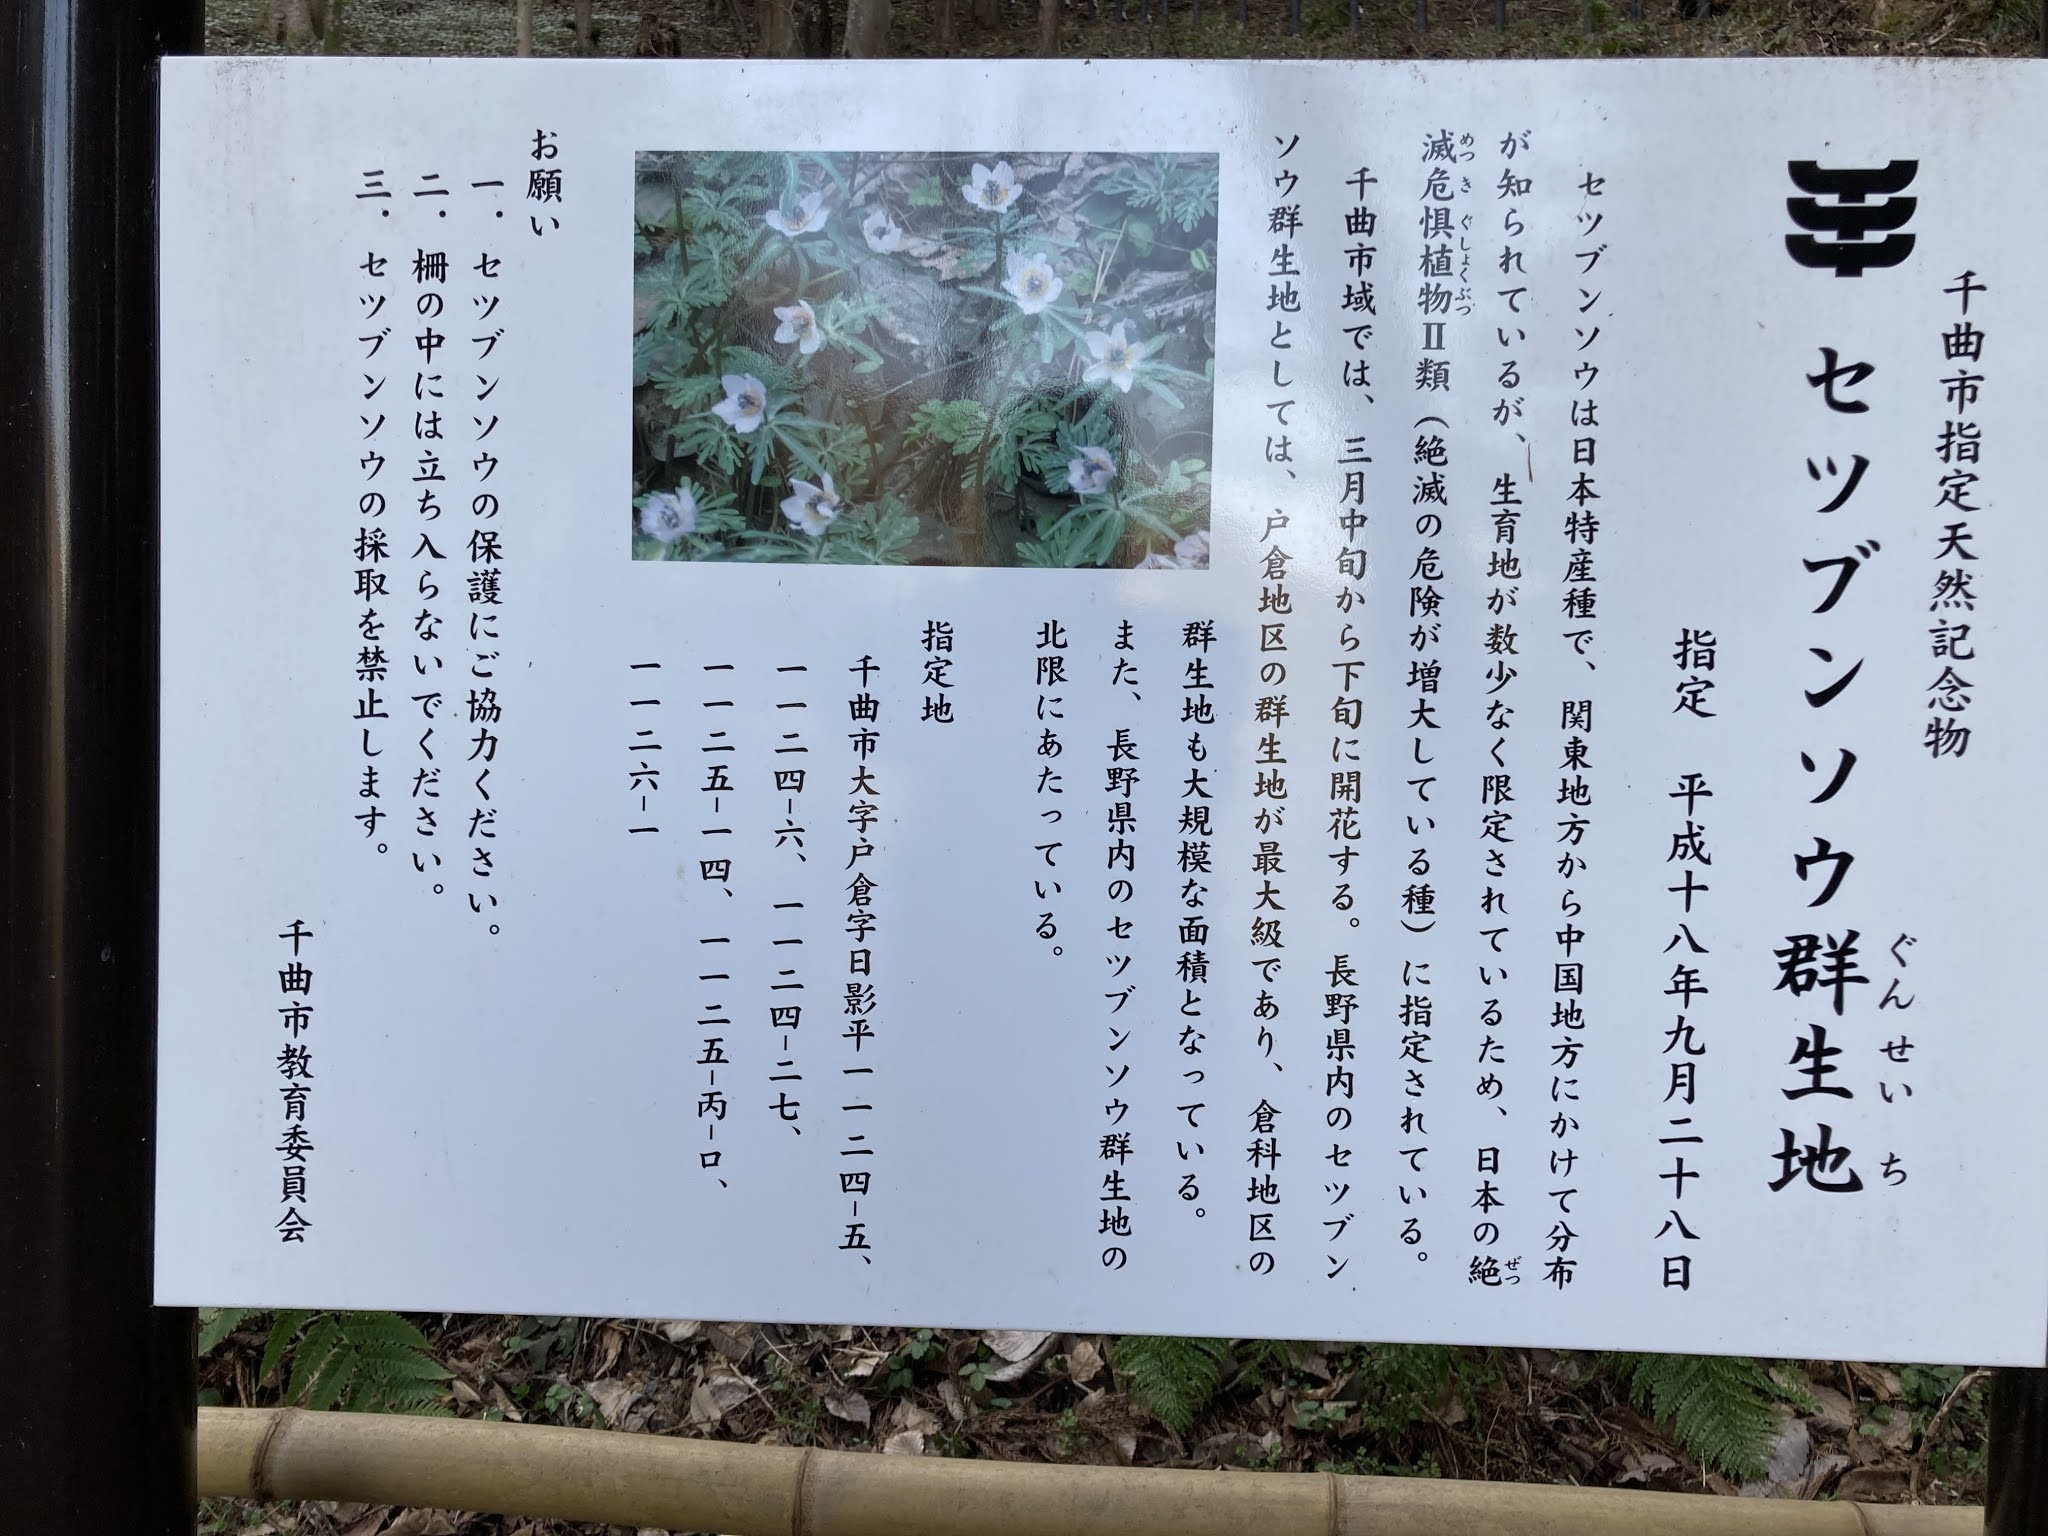 千曲市指定天然記念物
セツブンソウ群生地
ぐんせいち
指定 平成十八年九月二十八日
セツブンソウは日本特産種で、関東地方から中国地方にかけて分布
が知られているが、生育地が数少なく限定されているため、日本の絶
ぜつ
滅危惧植物Ⅱ類（絶滅の危険が増大している種）に指定されている。
めつきぐしょくぶつ
千曲市域では、三月中旬から下旬に開花する。長野県内のセツブン
ソウ群生地としては、戸倉地区の群生地が最大級であり、倉科地区の
群生地も大規模な面積となっている。
また、長野県内のセツブンソウ群生地の
北限にあたっている。
指定地
千曲市大字戸倉字日影平一一二四-五、
一一二四-六、一一二四-二七、
一一二五-一四、一一二五-丙-ロ、
一一二六-一
お願い
一．セツブンソウの保護にご協力ください。
二．柵の中には立ち入らないでください。
三．セツブンソウの採取を禁止します。
千曲市教育委員会